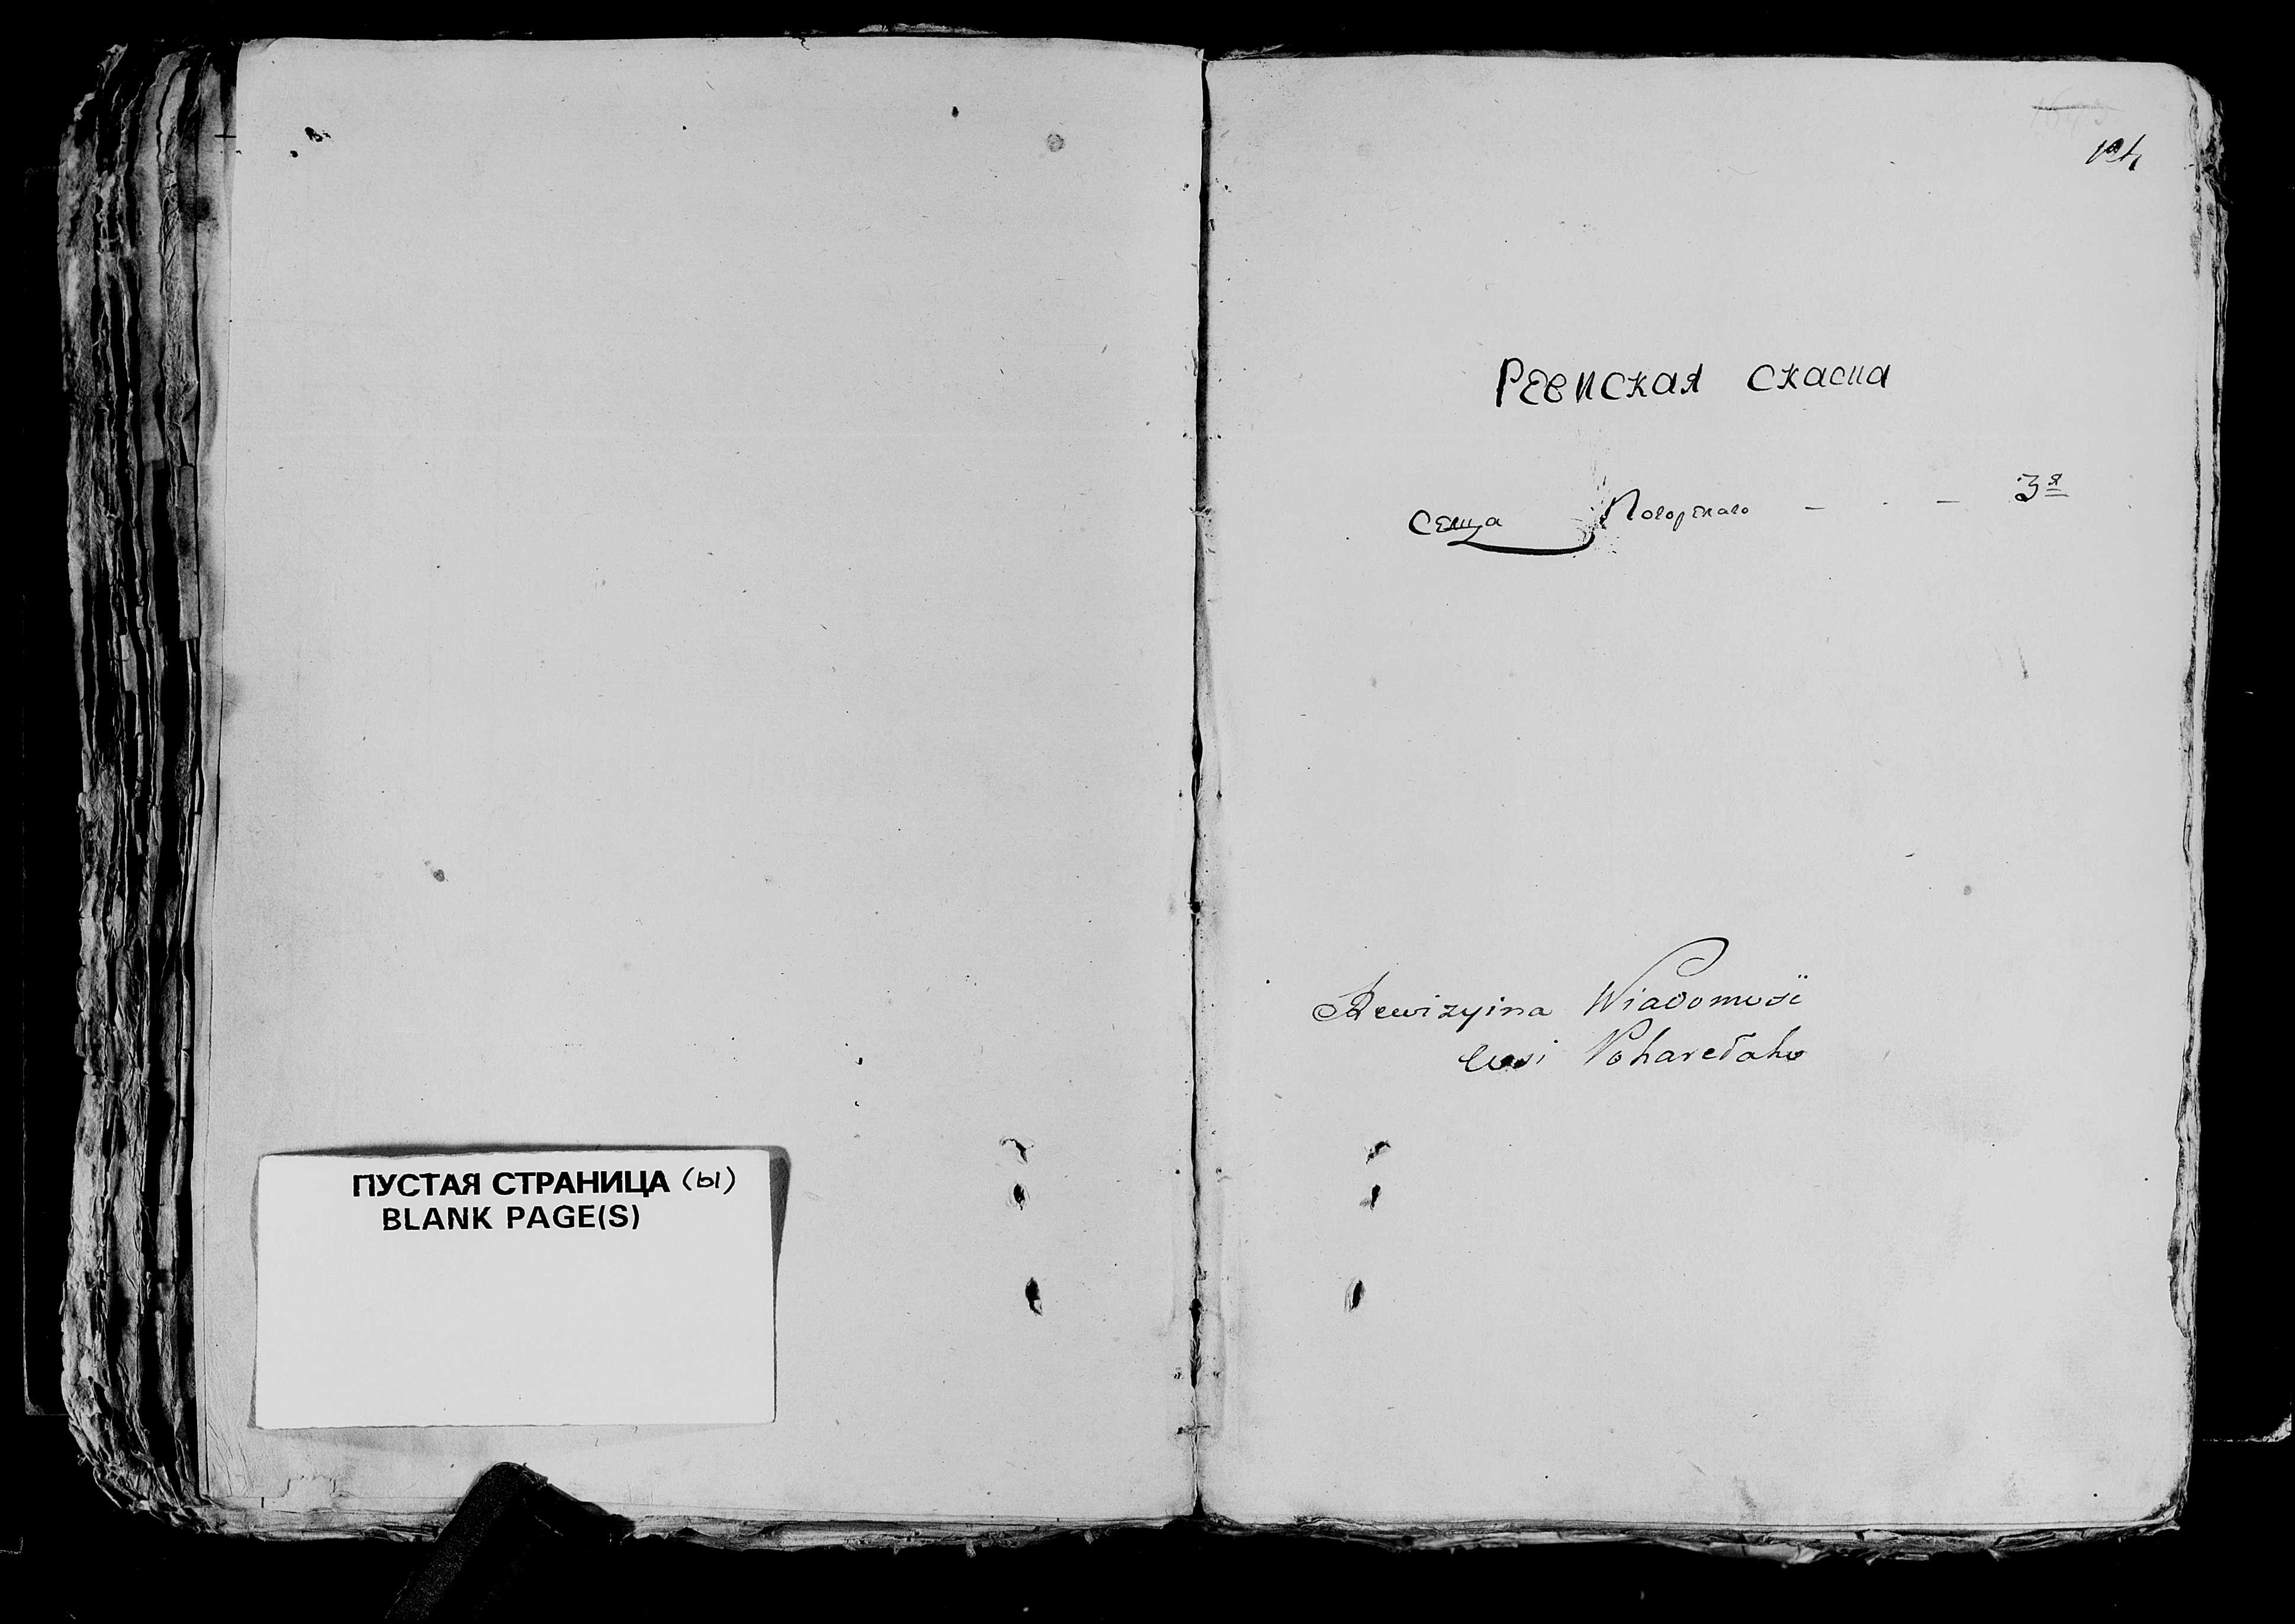 ПУСТАЯ СТРАНИЦА (ы)
BLANK PAGE(S)
Ревиская скаска
Селца Погорелаго - - - 3я
Rewizyina Wiadomosć
wsi Poharełaho